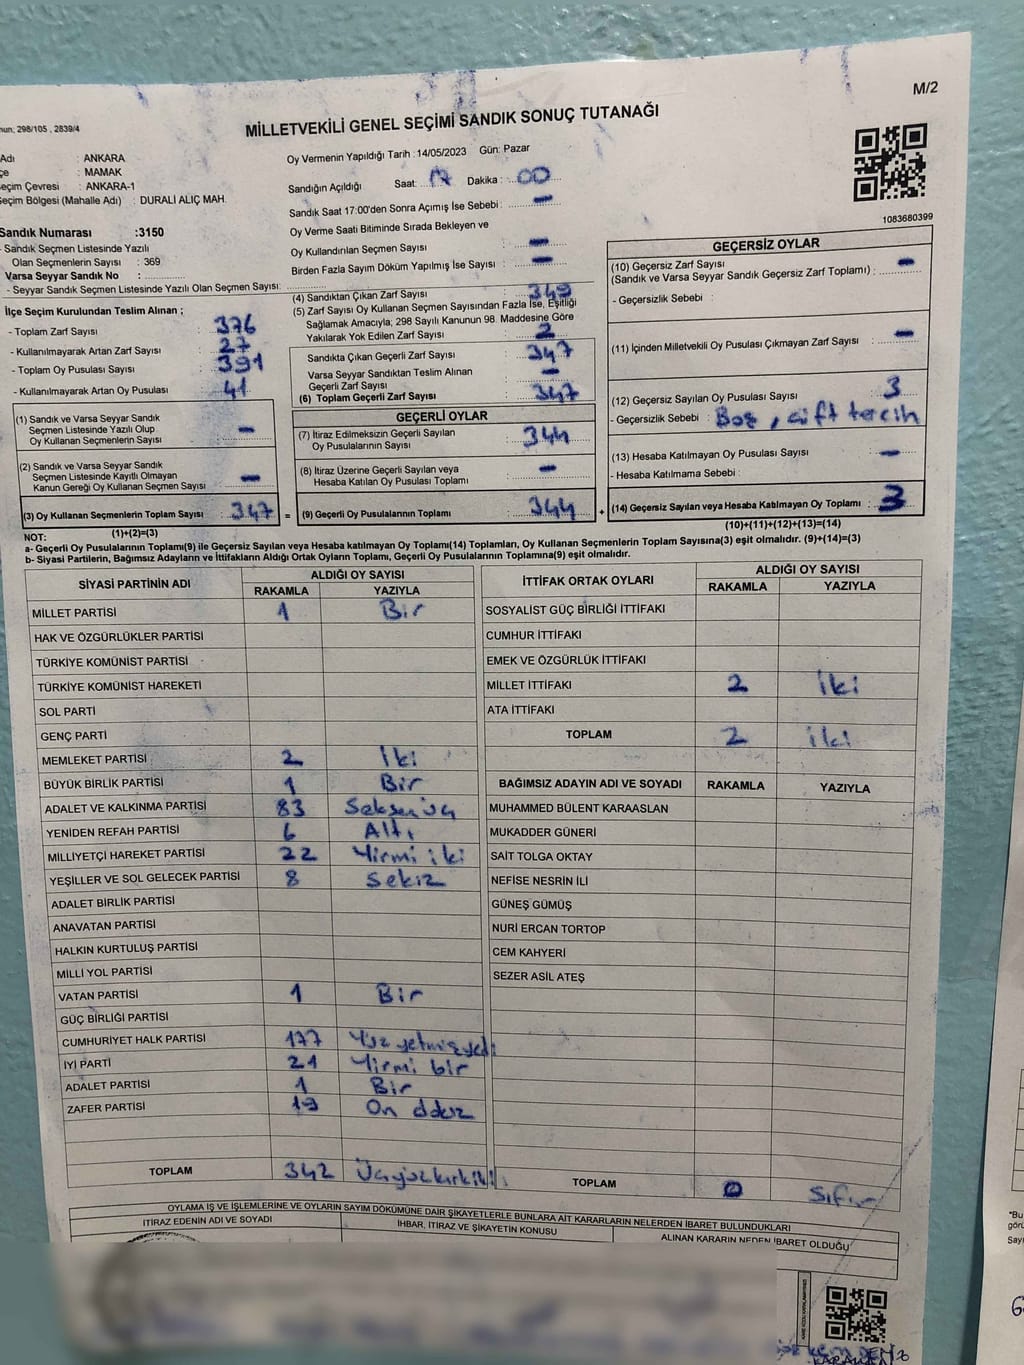 M/2
nun, 298/105 , 2839/4
MİLLETVEKİLİ GENEL SEÇİMİ SANDIK SONUÇ TUTANAĞI
Adı : ANKARA
çe : MAMAK
eçim Çevresi : ANKARA-1
eçim Bölgesi (Mahalle Adı) : DURALİ ALIÇ MAH.
Oy Vermenin Yapıldığı Tarih : 14/05/2023 Gün: Pazar
Sandığın Açıldığı Saat: 17 Dakika : 00
Sandık Saat 17:00'den Sonra Açımış İse Sebebi : —
Oy Verme Saati Bitiminde Sırada Bekleyen ve
Oy Kullandırılan Seçmen Sayısı : —
Birden Fazla Sayım Döküm Yapılmış İse Sayısı : —
1083680399
Sandık Numarası :3150
- Sandık Seçmen Listesinde Yazılı
Olan Seçmenlerin Sayısı : 369
Varsa Seyyar Sandık No :
- Seyyar Sandık Seçmen Listesinde Yazılı Olan Seçmen Sayısı:
İlçe Seçim Kurulundan Teslim Alınan ;
- Toplam Zarf Sayısı : 376
- Kullanılmayarak Artan Zarf Sayısı : 27
- Toplam Oy Pusulası Sayısı : 391
- Kullanılmayarak Artan Oy Pusulası : 41
(1) Sandık ve Varsa Seyyar Sandık
Seçmen Listesinde Yazılı Olup
Oy Kullanan Seçmenlerin Sayısı : —
(2) Sandık ve Varsa Seyyar Sandık
Seçmen Listesinde Kayıtlı Olmayan
Kanun Gereği Oy Kullanan Seçmen Sayısı : —
(3) Oy Kullanan Seçmenlerin Toplam Sayısı : 347 =
(1)+(2)=(3)
(4) Sandıktan Çıkan Zarf Sayısı : 349
(5) Zarf Sayısı Oy Kullanan Seçmen Sayısından Fazla İse, Eşitliği
Sağlamak Amacıyla, 298 Sayılı Kanunun 98. Maddesine Göre
Yakılarak Yok Edilen Zarf Sayısı : 2
Sandıkta Çıkan Geçerli Zarf Sayısı : 347
Varsa Seyyar Sandıktan Teslim Alınan
Geçerli Zarf Sayısı : —
(6) Toplam Geçerli Zarf Sayısı : 347
GEÇERLİ OYLAR
(7) İtiraz Edilmeksizin Geçerli Sayılan
Oy Pusulalarının Sayısı : 344
(8) İtiraz Üzerine Geçerli Sayılan veya
Hesaba Katılan Oy Pusulası Toplamı : —
(9) Geçerli Oy Pusulalarının Toplamı : 344 +
GEÇERSİZ OYLAR
(10) Geçersiz Zarf Sayısı
(Sandık ve Varsa Seyyar Sandık Geçersiz Zarf Toplamı) : —
- Geçersizlik Sebebi :
(11) İçinden Milletvekili Oy Pusulası Çıkmayan Zarf Sayısı : —
(12) Geçersiz Sayılan Oy Pusulası Sayısı : 3
- Geçersizlik Sebebi : Boş, çift tercih
(13) Hesaba Katılmayan Oy Pusulası Sayısı : —
- Hesaba Katılmama Sebebi :
(14) Geçersiz Sayılan veya Hesaba Katılmayan Oy Toplamı : 3
(10)+(11)+(12)+(13)=(14)
NOT:
a- Geçerli Oy Pusulalarının Toplamı(9) ile Geçersiz Sayılan veya Hesaba katılmayan Oy Toplamı(14) Toplamları, Oy Kullanan Seçmenlerin Toplam Sayısına(3) eşit olmalıdır. (9)+(14)=(3)
b- Siyasi Partilerin, Bağımsız Adayların ve İttifakların Aldığı Ortak Oyların Toplamı, Geçerli Oy Pusulalarının Toplamına(9) eşit olmalıdır.
SİYASİ PARTİNİN ADI ALDIĞI OY SAYISI
RAKAMLA YAZIYLA
MİLLET PARTİSİ 1 Bir
HAK VE ÖZGÜRLÜKLER PARTİSİ
TÜRKİYE KOMÜNİST PARTİSİ
TÜRKİYE KOMÜNİST HAREKETİ
SOL PARTİ
GENÇ PARTİ
MEMLEKET PARTİSİ 2 İki
BÜYÜK BİRLİK PARTİSİ 1 Bir
ADALET VE KALKINMA PARTİSİ 83 Seksen üç
YENİDEN REFAH PARTİSİ 6 Altı
MİLLİYETÇİ HAREKET PARTİSİ 22 Yirmi iki
YEŞİLLER VE SOL GELECEK PARTİSİ 8 Sekiz
ADALET BİRLİK PARTİSİ
ANAVATAN PARTİSİ
HALKIN KURTULUŞ PARTİSİ
MİLLİ YOL PARTİSİ
VATAN PARTİSİ 1 Bir
GÜÇ BİRLİĞİ PARTİSİ
CUMHURİYET HALK PARTİSİ 177 Yüz yetmiş yedi
İYİ PARTİ 21 Yirmi bir
ADALET PARTİSİ 1 Bir
ZAFER PARTİSİ 19 On dokuz
TOPLAM 342 Üçyüzkırkiki
İTTİFAK ORTAK OYLARI ALDIĞI OY SAYISI
RAKAMLA YAZIYLA
SOSYALİST GÜÇ BİRLİĞİ İTTİFAKI
CUMHUR İTTİFAKI
EMEK VE ÖZGÜRLÜK İTTİFAKI
MİLLET İTTİFAKI 2 İki
ATA İTTİFAKI
TOPLAM 2 iki
BAĞIMSIZ ADAYIN ADI VE SOYADI RAKAMLA YAZIYLA
MUHAMMED BÜLENT KARAASLAN
MUKADDER GÜNERİ
SAİT TOLGA OKTAY
NEFİSE NESRİN İLİ
GÜNEŞ GÜMÜŞ
NURİ ERCAN TORTOP
CEM KAHYERİ
SEZER ASİL ATEŞ
TOPLAM 0 Sıfır
OYLAMA İŞ VE İŞLEMLERİNE VE OYLARIN SAYIM DÖKÜMÜNE DAİR ŞİKAYETLERLE BUNLARA AİT KARARLARIN NELERDEN İBARET BULUNDUKLARI
İTİRAZ EDENİN ADI VE SOYADI İHBAR, İTİRAZ VE ŞİKAYETİN KONUSU ALINAN KARARIN NEDEN İBARET OLDUĞU
"Bu
görü
Sayı